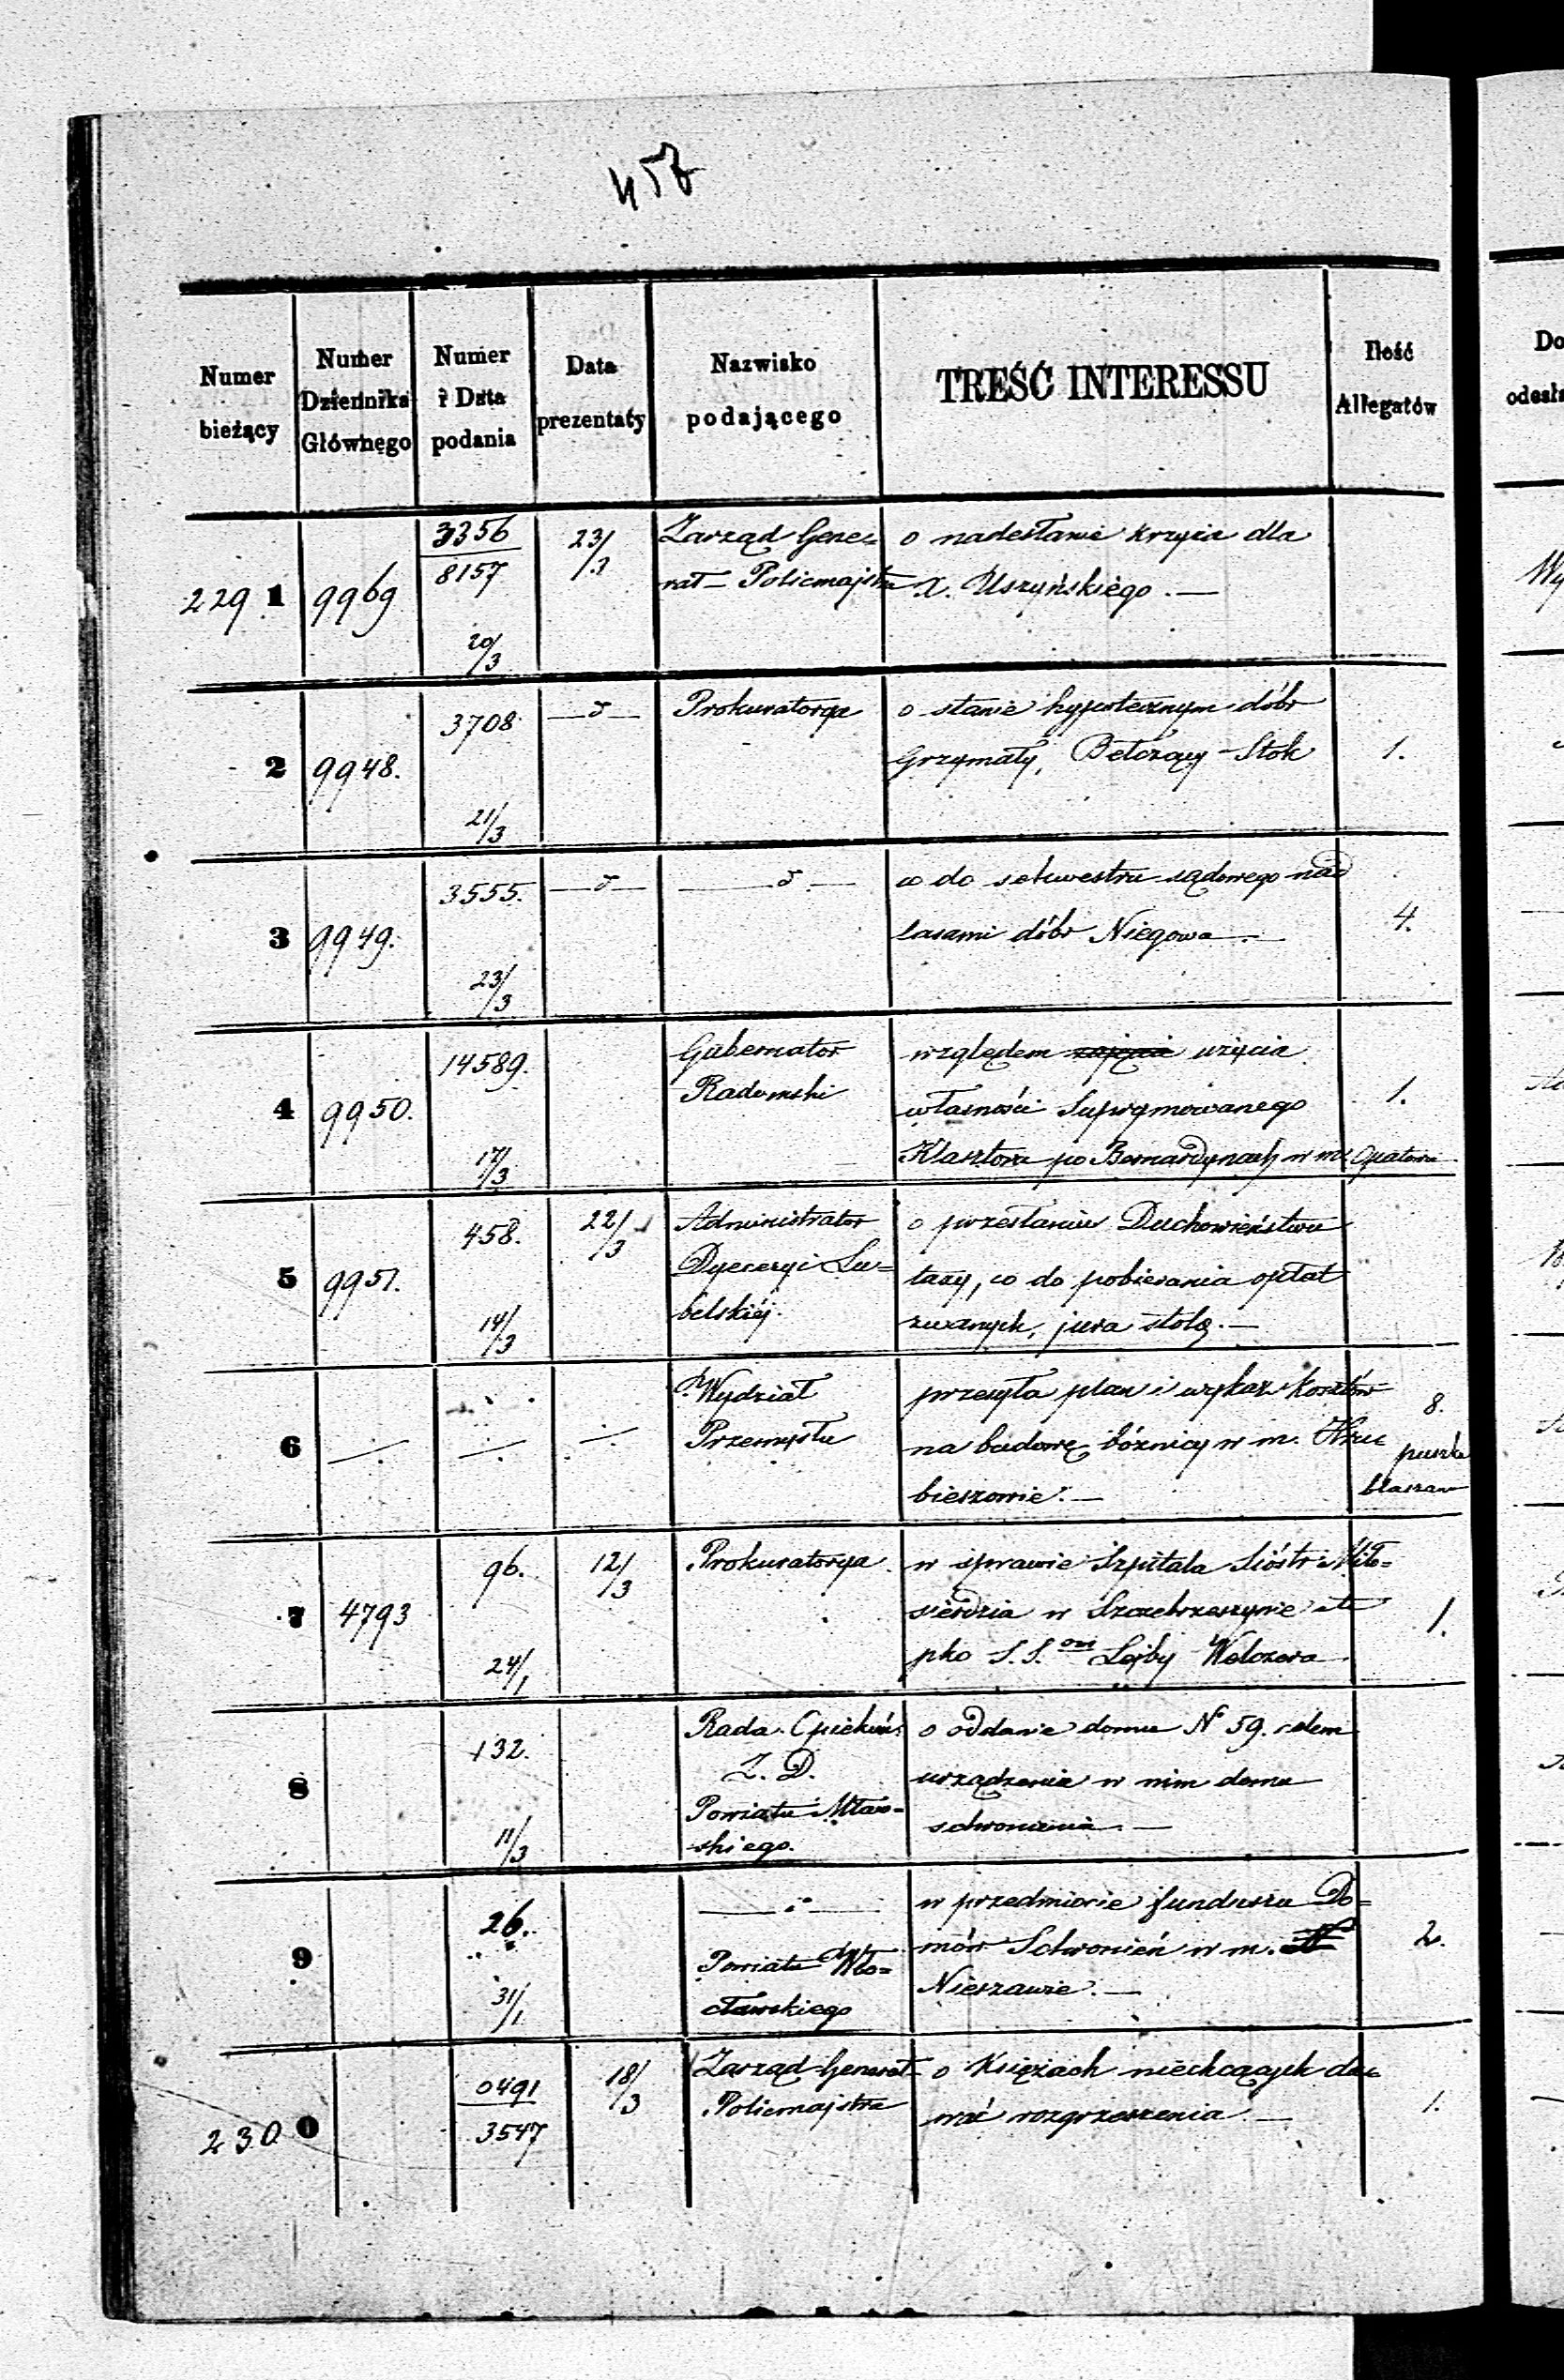 458
Numer bieżący
Numer Dziennika Głównego
Numer i Data podania
Data prezentaty
Nazwisko podającego
TREŚĆ INTERESSU
Ilość Allegatów
Do
odesła
229 1 9969 3356/8157 20/3 23/3
Zarząd Gene=
rał-Policmajstra
o nadesłanie krzyża dla
X. Uszyńskiego. —
2 9948. 3708 21/3 — d —
Prokuratorya
o stanie hypotecznym dóbr
Grzymały, Bełczący-Stok
1.
3 9949. 3555. 23/3 — d — — d —
co do sekwestru sądowego nad
lasami dóbr Niegowa —
4.
4 9950. 14589. 17/3
Gubernator
Radomski
względem użycia
własności Suprymowanego
Klasztoru po Bernardynach w m. Opatowie
1.
5 9951. 458. 14/3 22/3
Administrator
Dyecezyi Lu=
belskiej.
o przesłaniu Duchowieństwu
taxy, co do pobierania opłat
zwanych, jura stolę. —
6
Wydział
Przemysłu
przesyła plan i wykaz kosztów
na budowę bóżnicy w m. Hru
bieszowie. —
8.
puszka
blaszan
7 4793 96. 24/1 12/3
Prokuratorya
w sprawie Szpitala Sióstr Miło=
sierdzia w Szczebrzeszynie
pko S.S.om Lejby Welczera
1.
8 132. 11/3
Rada Opiekuń.
Z. D.
Powiatu Mław=
skiego.
o oddanie domu N 59. celem
urządzenia w nim domu
schronienia. —
9 26. 31/1
Powiatu Wło=
cławskiego
w przedmiocie funduszu Do=
mów Schronień w m.
Nieszawie. —
2.
230 0 0491/3547 18/3
Zarząd Generał-
Policmajstra
o Księżach niechcących da=
wać rozgrzeszenia —
1.